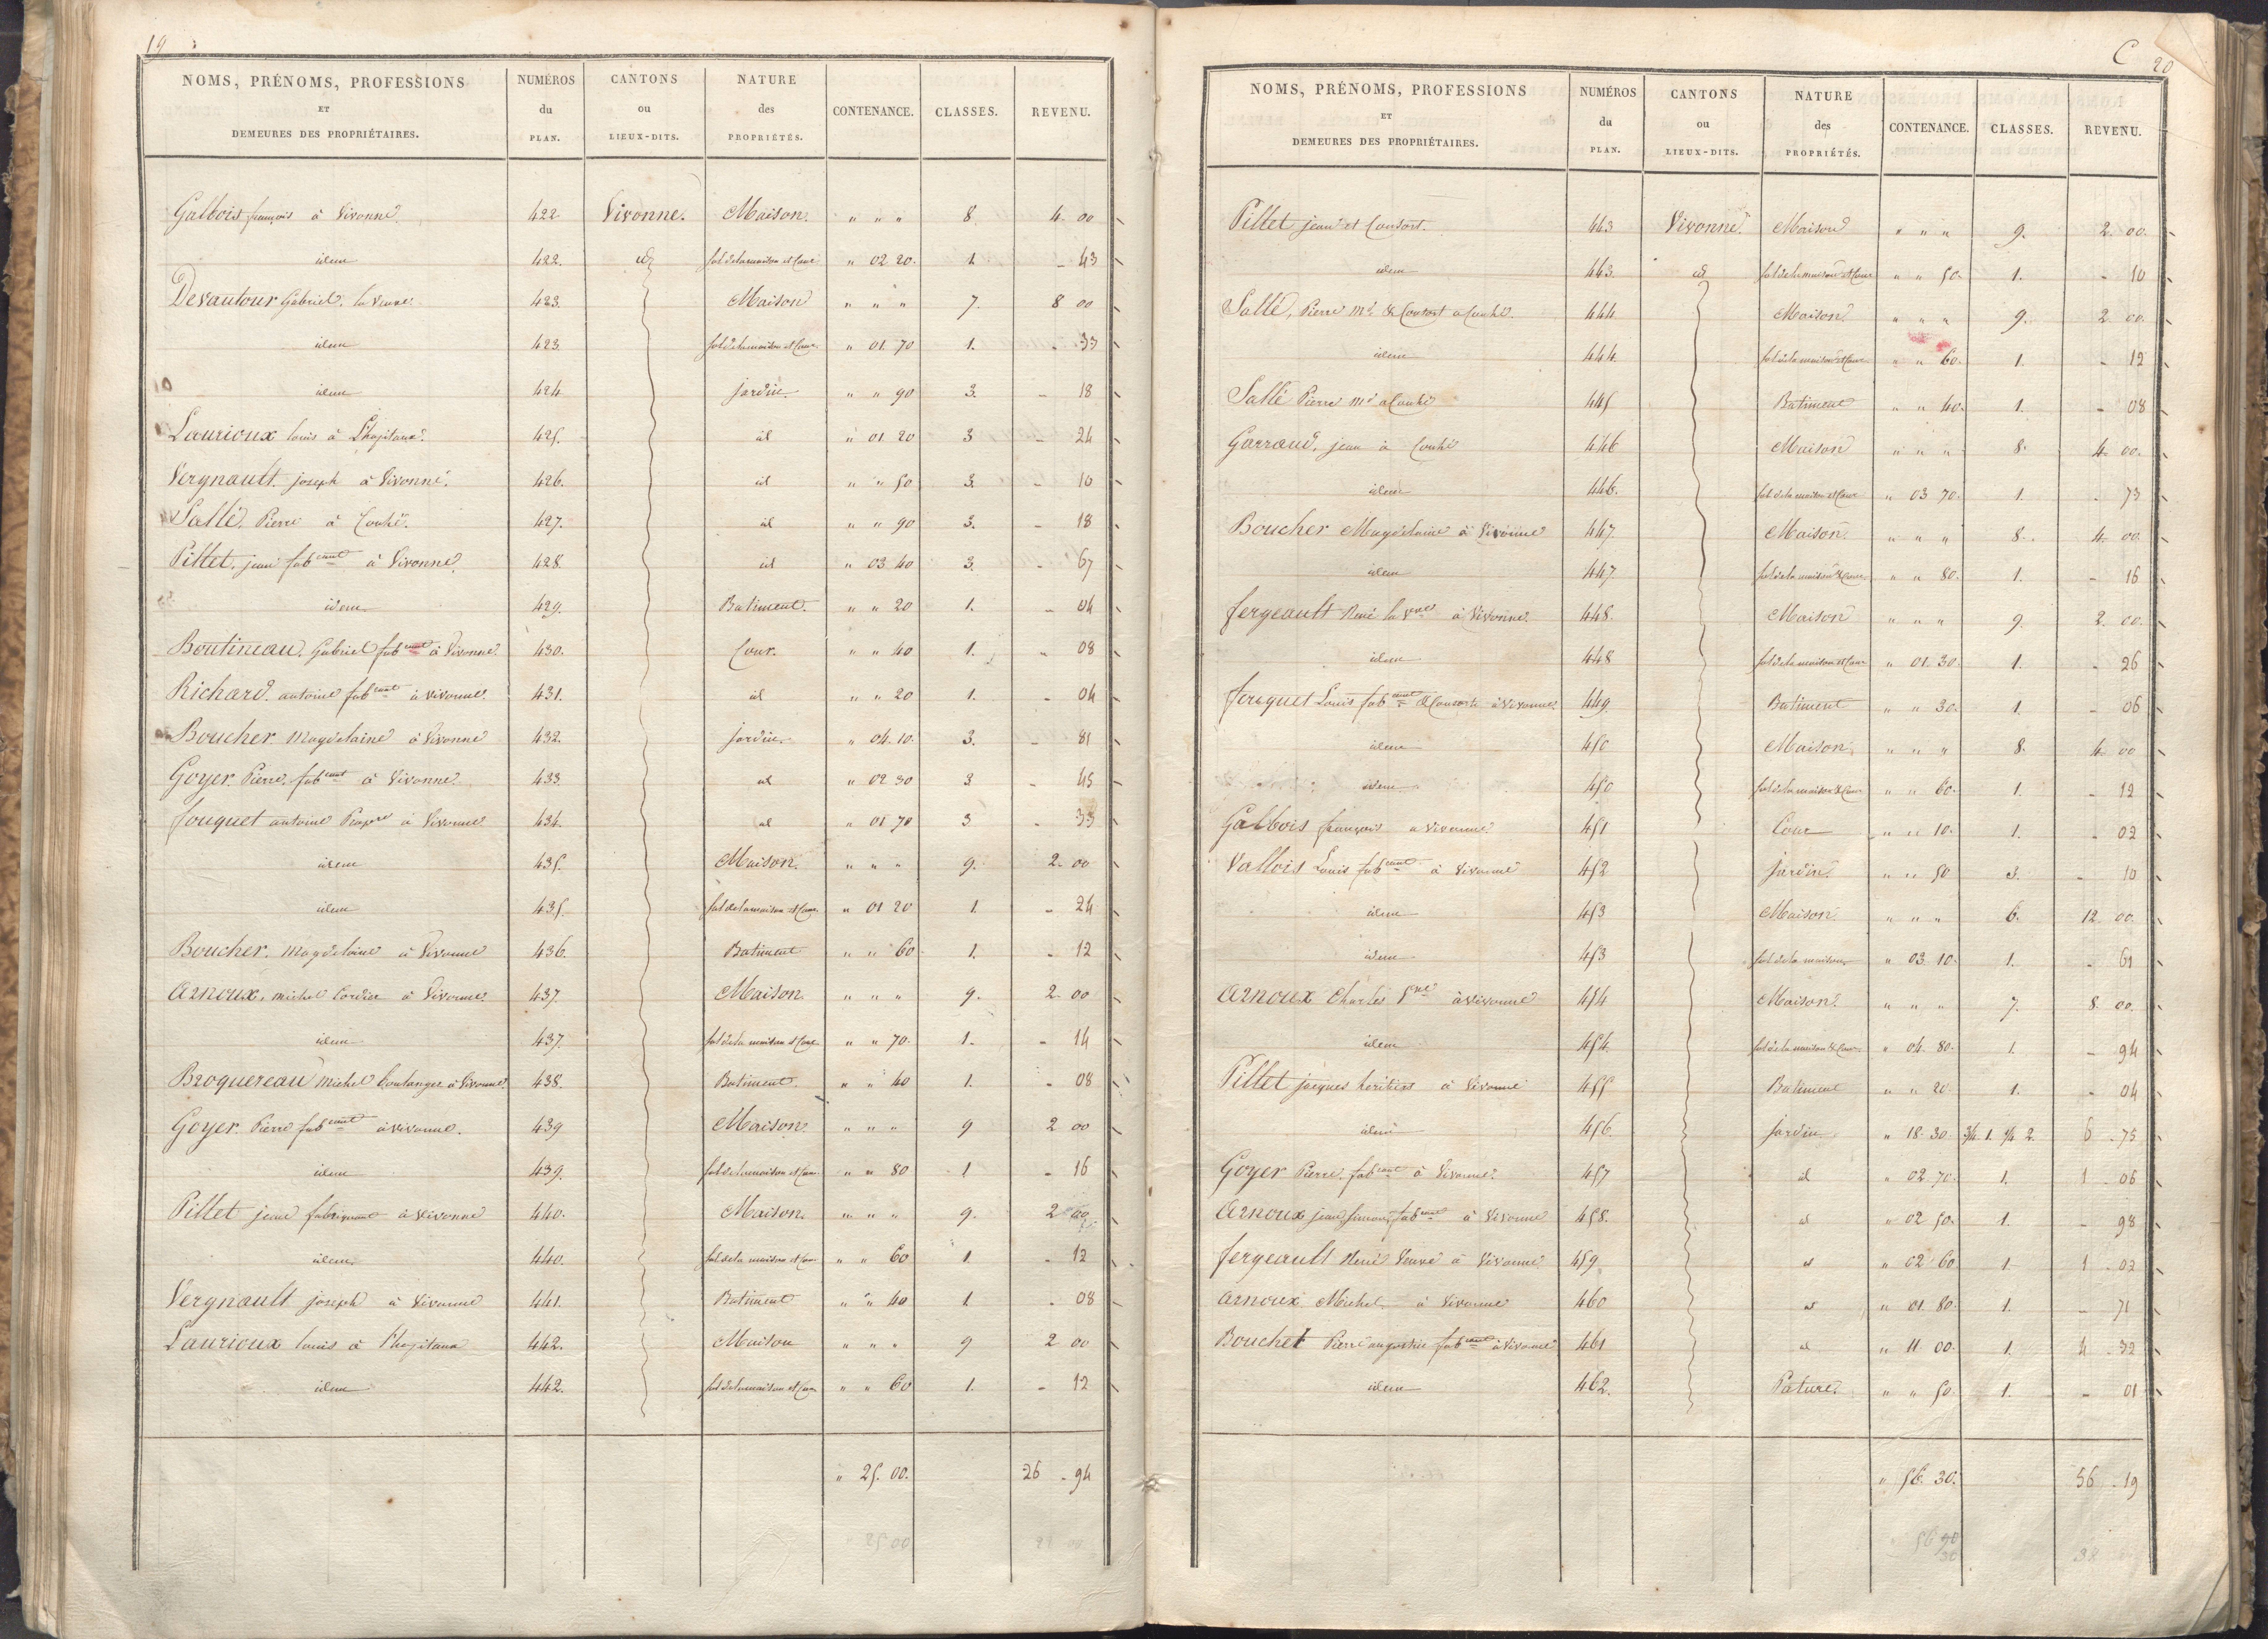 19
NOMS, PRÉNOMS, PROFESSIONS ET DEMEURES DES PROPRIÉTAIRES. NUMÉROS du PLAN. CANTONS ou LIEUX-DITS. NATURE des PROPRIÉTÉS. CONTENANCE. CLASSES. REVENU.
Galbois françois à Vivonne 422 Vivonne. Maison. " " " 8. 4. 00
idem 422. id sol de la maison et Cour " 02 20. 1. - 43
Devautour Gabriel, la Veuve. 423. Maison " " " 7. 8 00
idem 423. sol de la maison et Cour " 01. 70 1. - 33
idem 424 jardin. " " 90 3. - 18
Laurioux louis à L'hopitaux. 425. id " 01 20 3 - 24
Vergnault joseph à Vivonne. 426. id " " 50 3. - 10
Sallé, Pierre à Couhé. 427. id " " 90 3. - 18
Pillet, jean fabcant à Vivonne 428. id " 03 40 3. - 67
idem 429. Batiment. " " 20 1. - 04
Boutineau, Gabriel fabcant à Vivonne. 430. Cour. " " 40 1. " 08
Richard antoine fabcant à vivonne. 431. id " " 20 1. - 04
Boucher Magdelaine à Vivonne 432. jardin. " 04. 10. 3. - 81
Goyer. Pierre, fabcant à Vivonne 433. id " 02 30 3 - 45
fouquet antoine à Vivonne 434. id " 01 70 3 - 33
idem 435. Maison. " " " 9. 2. 00
idem 435. sol de la maison et Cour. " 01 20 1. - 24
Boucher, Magdelaine à Vivonne 436. Batiment " " 60 1. - 12
Arnoux, michel Cordier à Vivonne 437. Maison. " " " 9. 2. 00
idem 437. sol de la maison et Cour " " 70. 1. - 14
Broquereau michel boulanger à Vivonne 438. Batiment. " " 40 1. - 08
Goyer. Pierre fabcant à vivonne. 439 Maison. " " " 9 2 00
idem 439. sol de la maison et Cour " " 80 1 - 16
Pillet jean fabriquant à Vivonne 440. Maison. " " " 9. 2 00
idem. 440. sol de la maison et Cour " " 60 1. - 12
Vergnault joseph à Vivonne 441. Batiment " " 40 1. - 08
Laurioux louis à l'hopitaux 442. Maison " " " 9 2 00
idem 442. sol de la maison et Cour " " 60 1. - 12
" 25. 00. 26 - 94
25 00
C 20
NOMS, PRÉNOMS, PROFESSIONS ET DEMEURES DES PROPRIÉTAIRES. NUMÉROS du PLAN. CANTONS ou LIEUX-DITS. NATURE des PROPRIÉTÉS. CONTENANCE. CLASSES. REVENU.
Pillet jean et Consort. 443 Vivonne. Maison " " " 9. 2. 00.
idem 443. id sol de la maison et Cour " " 50. 1. - 10
Sallé, Pierre Md. & Consort à Couhé. 444 Maison. " " " 9. 2. 00.
idem 444. sol de la maison et Cour " " 60. 1. - 12
Sallé Pierre Md à Couhé 445 Batiment " " 40. 1. - 08
Garraud, jean à Couhé 446 Maison " " " 8. 4. 00.
idem 446. sol de la maison et Cour " 03 70. 1. - 73
Boucher Magdelaine à Vivonne 447. Maison. " " " 8. 4. 00.
idem 447. sol de la maison & Cour " " 80. 1. - 16
fergeault René la Vve à Vivonne. 448. Maison " " " 9. 2. 00.
idem 448 sol de la maison et Cour " 01. 30. 1. - 26
Louis fabcant & Consorts à Vivonne. 449. Batiment " " 30. 1. - 06
idem 450 Maison. " " " 8. 4. 00
idem 450 sol de la maison & Cour " " 60. 1. - 12
Galbois françois à vivonne 451 Cour " " 10. 1. - 02
Vallois Louis fabcant à vivonne 452 jardin. " " 50 3. - 10
idem 453 Maison " " " 6. 12. 00.
idem 453 sol de la maison " 03. 10. 1. - 61
Arnoux Charles à vivonne 454 Maison. " " " 7. 8. 00.
idem 454. sol de la maison & Cour " 04. 80. 1. - 94
Pillet jacques heritiers à Vivonne 455 Batiment " " 20. 1. - 04
idem 456. jardin. " 18. 30 3/4 1. 1/4 2. 6 - 75
Goyer Pierre, fabcant à Vivonne. 457 id " 02 70. 1. 1 - 06
Arnoux jean simon, fabcant à Vivonne 458. id " 02 50. 1. - 98
fergeault René Veuve à Vivonne 459 id " 02 60 1. 1 - 02
Arnoux Michel. à Vivonne 460 id " 01. 80. 1. - 71
Bouchet Pierre augustin fabcant à Vivonne 461 id " 11. 00. 1. 4 - 32
idem 462. Pature. " " 50. 1. - 01
" 56. 30. 56 - 19
56 90
30
38